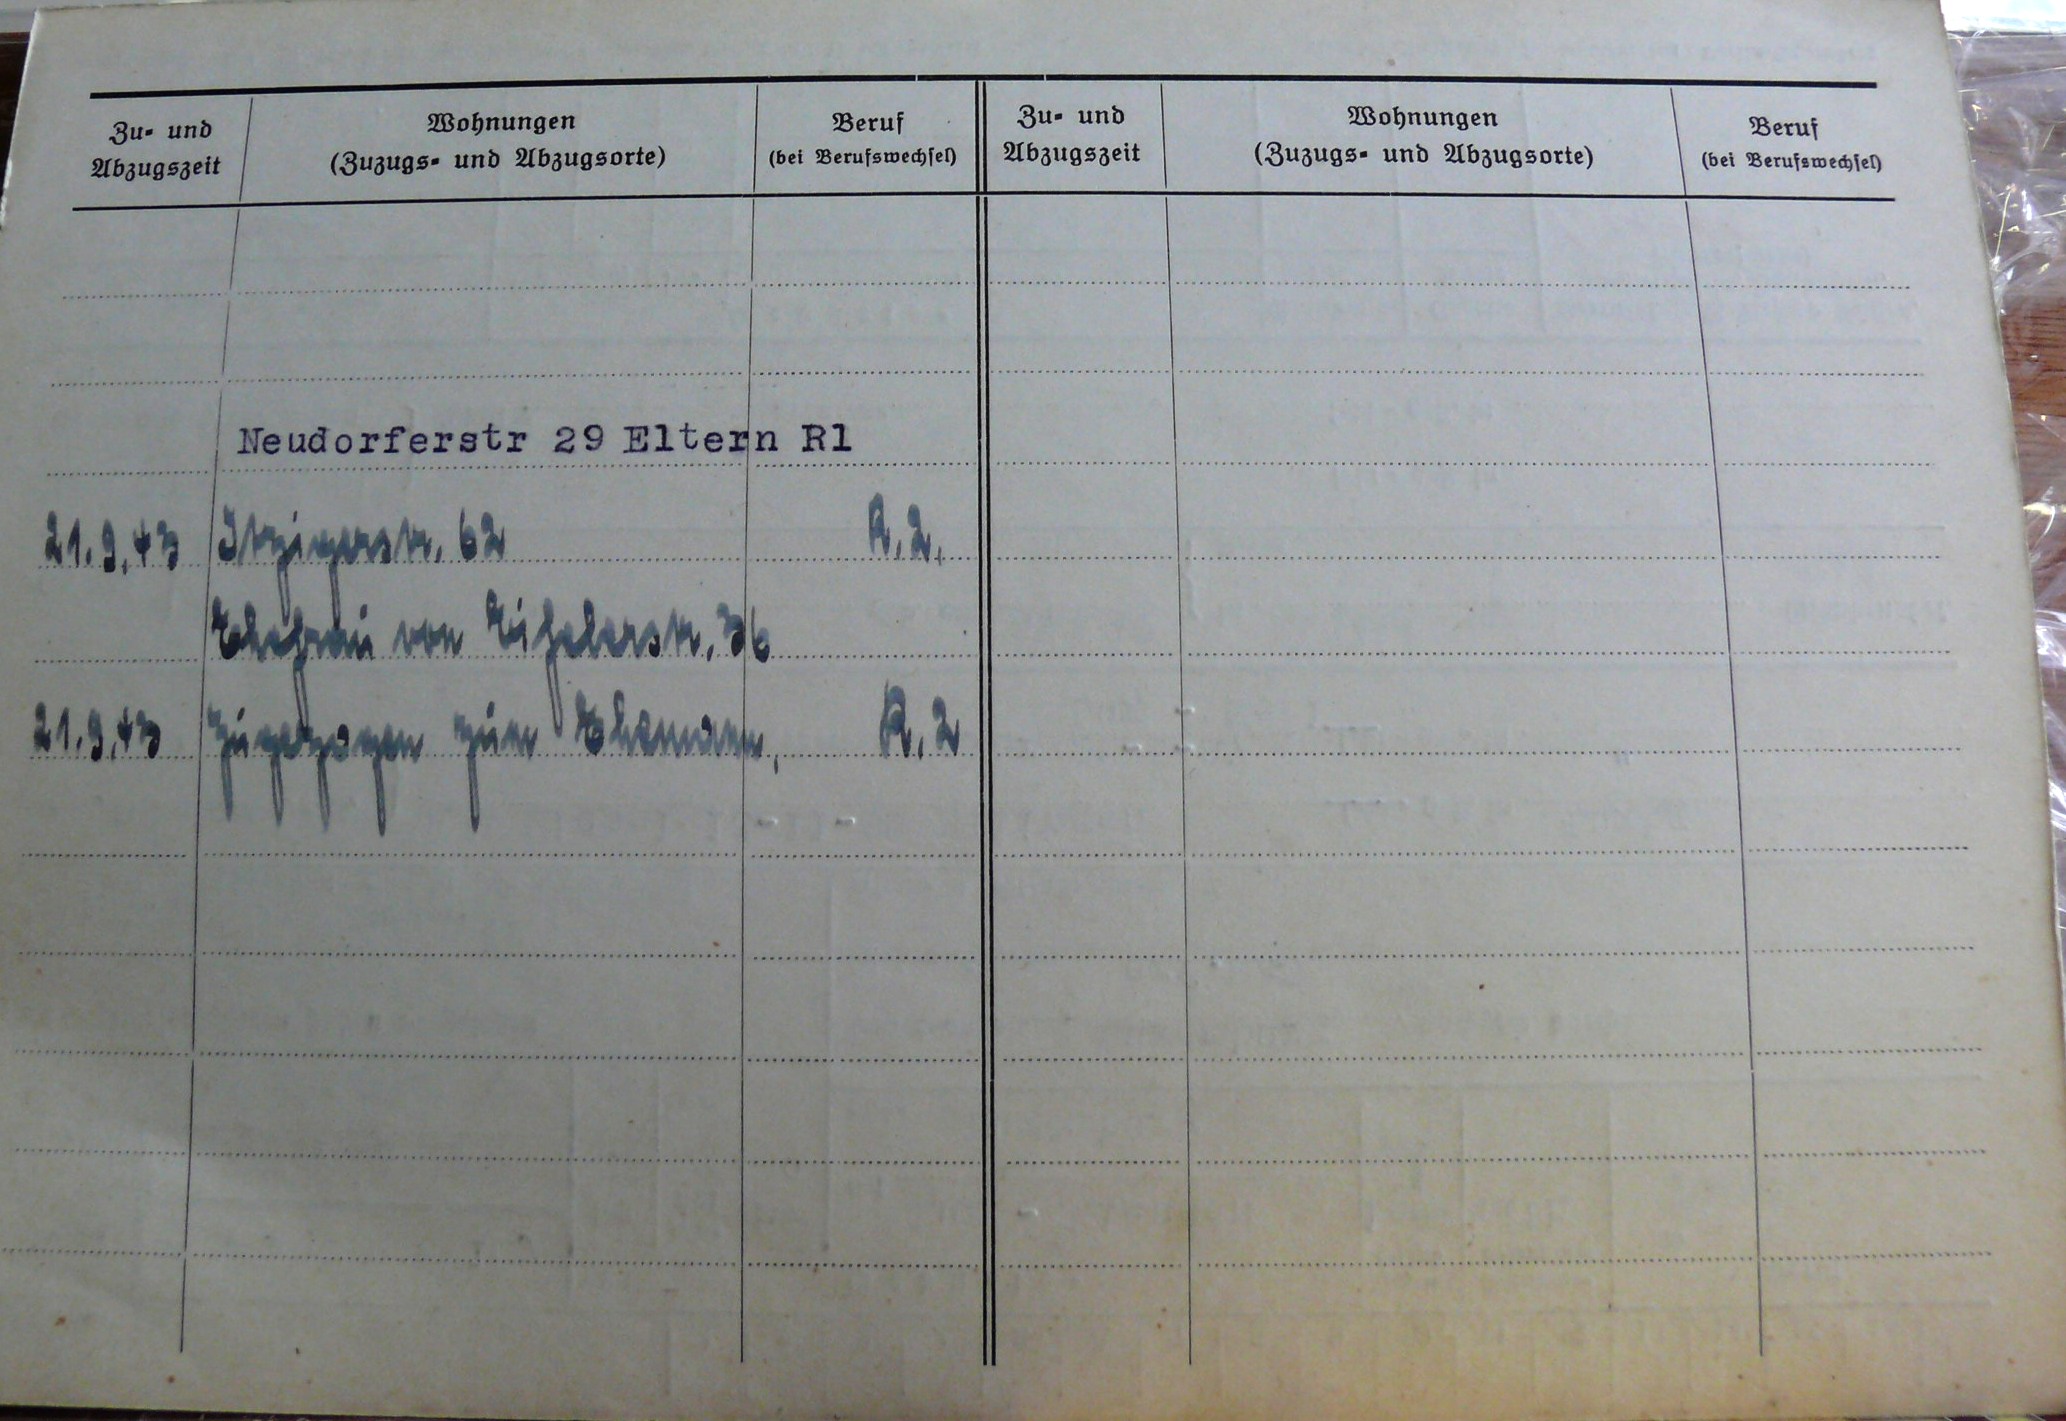 Zu- und
Abzugszeit
Wohnungen
(Zuzugs- und Abzugsorte)
Beruf
(bei Berufswechsel)
Zu- und
Abzugszeit
Wohnungen
(Zuzugs- und Abzugsorte)
Beruf
(bei Berufswechsel)
Neudorferstr 29 Eltern R1
21.9.43 Itzigerstr. 62 R.2.
Ehefrau von 36
21.9.43 zugezogen zum Ehemann, R.2